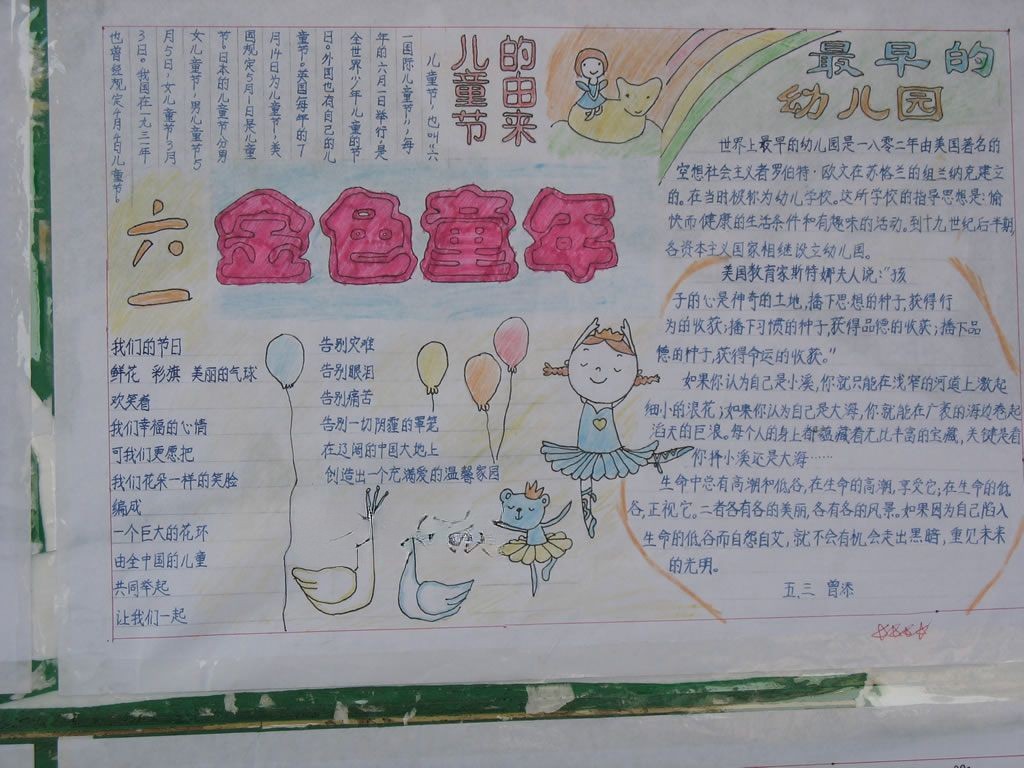 儿童节
的由来
儿童节,也叫“六
一国际儿童节”,每
年的六月一日举行,是
全世界少年儿童的节
日。外国也有自己的儿
童节。英国每年的7
月14日为儿童节,美
国规定5月1日是儿童
节。日本的儿童节分男
女儿童节,男儿童节5
月5日,女儿童节3月
3日。我国在一九三一年
也曾经规定4月4日儿童节。
六一
金色童年
我们的节日
鲜花 彩旗 美丽的气球
欢笑着
我们幸福的心情
可我们更愿把
我们花朵一样的笑脸
编成
一个巨大的花环
由全中国的儿童
共同举起
让我们一起
告别灾难
告别眼泪
告别痛苦
告别一切阴霾的笼罩
在辽阔的中国大地上
创造出一个充满爱的温馨家园
最早的
幼儿园
世界上最早的幼儿园是一八零二年由英国著名的
空想社会主义者罗伯特·欧文在苏格兰的纽兰纳克建立
的。在当时被称为幼儿学校。这所学校的指导思想是:愉
快而健康的生活条件和有趣味的活动。到十九世纪后半期,
各资本主义国家相继设立幼儿园。
美国教育家斯特娜夫人说:“孩
子的心是神奇的土地,播下思想的种子,获得行
为的收获;播下习惯的种子,获得品德的收获;播下品
德的种子,获得命运的收获。”
如果你认为自己是小溪,你就只能在浅窄的河道上激起
细小的浪花;如果你认为自己是大海,你就能在广袤的海边卷起
滔天的巨浪。每个人的身上都蕴藏着无比丰富的宝藏,关键是看
你择小溪还是大海……
生命中总有高潮和低谷,在生命的高潮,享受它;在生命的低
谷,正视它。二者各有各的美丽,各有各的风景。如果因为自己陷入
生命的低谷而自怨自艾,就不会有机会走出黑暗,重见未来
的光明。
五.三 曾添